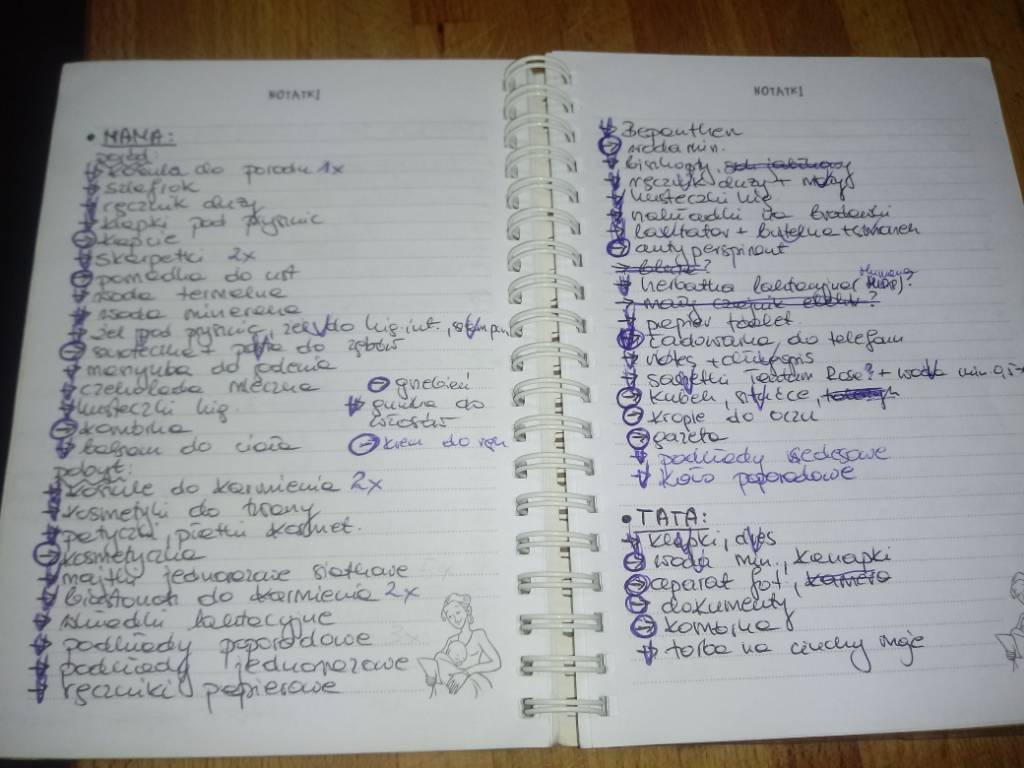 NOTATKI
• MAMA:
poród:
koszula do porodu 1x
szlafrok
ręcznik duży
klapki pod prysznic
kapcie
skarpetki 2x
pomadka do ust
woda termalna
woda mineralna
żel pod prysznic, żel do hig. int.,
szczoteczka + pasta do zębów
maszynka do golenia
czekolada mleczna
grzebień
chusteczki hig
gumka do
włosów
komórka
balsam do ciała
krem do rąk
pobyt:
koszule do karmienia 2x
kosmetyki do twarzy
patyczki, płatki kosmet.
kosmetyczka
majtki jednorazowe siatkowe
biustonosz do karmienia 2x
wkładki laktacyjne
podkłady poporodowe 3x
podkłady jednorazowe
ręczniki papierowe
NOTATKI
Bepanthen
woda min.
biszkopty,
ręcznik duży + mały
chusteczki hig
nakładki na brodawki
laktator + butelka + smoczek
antyperspirant
bluza?
herbatka laktacyjna (Humana, HiPP)?
mały czajnik elektr?
papier toalet.
ładowarka do telefonu
notes + długopis
saszetki Tantum Rosa? + woda min. 0,5
kubek, sztućce,
krople do oczu
gazeta
podkłady sedesowe
koło poporodowe
• TATA:
klapki, dres
woda min., kanapki
aparat fot., kamera
dokumenty
komórka
torba na ciuchy moje